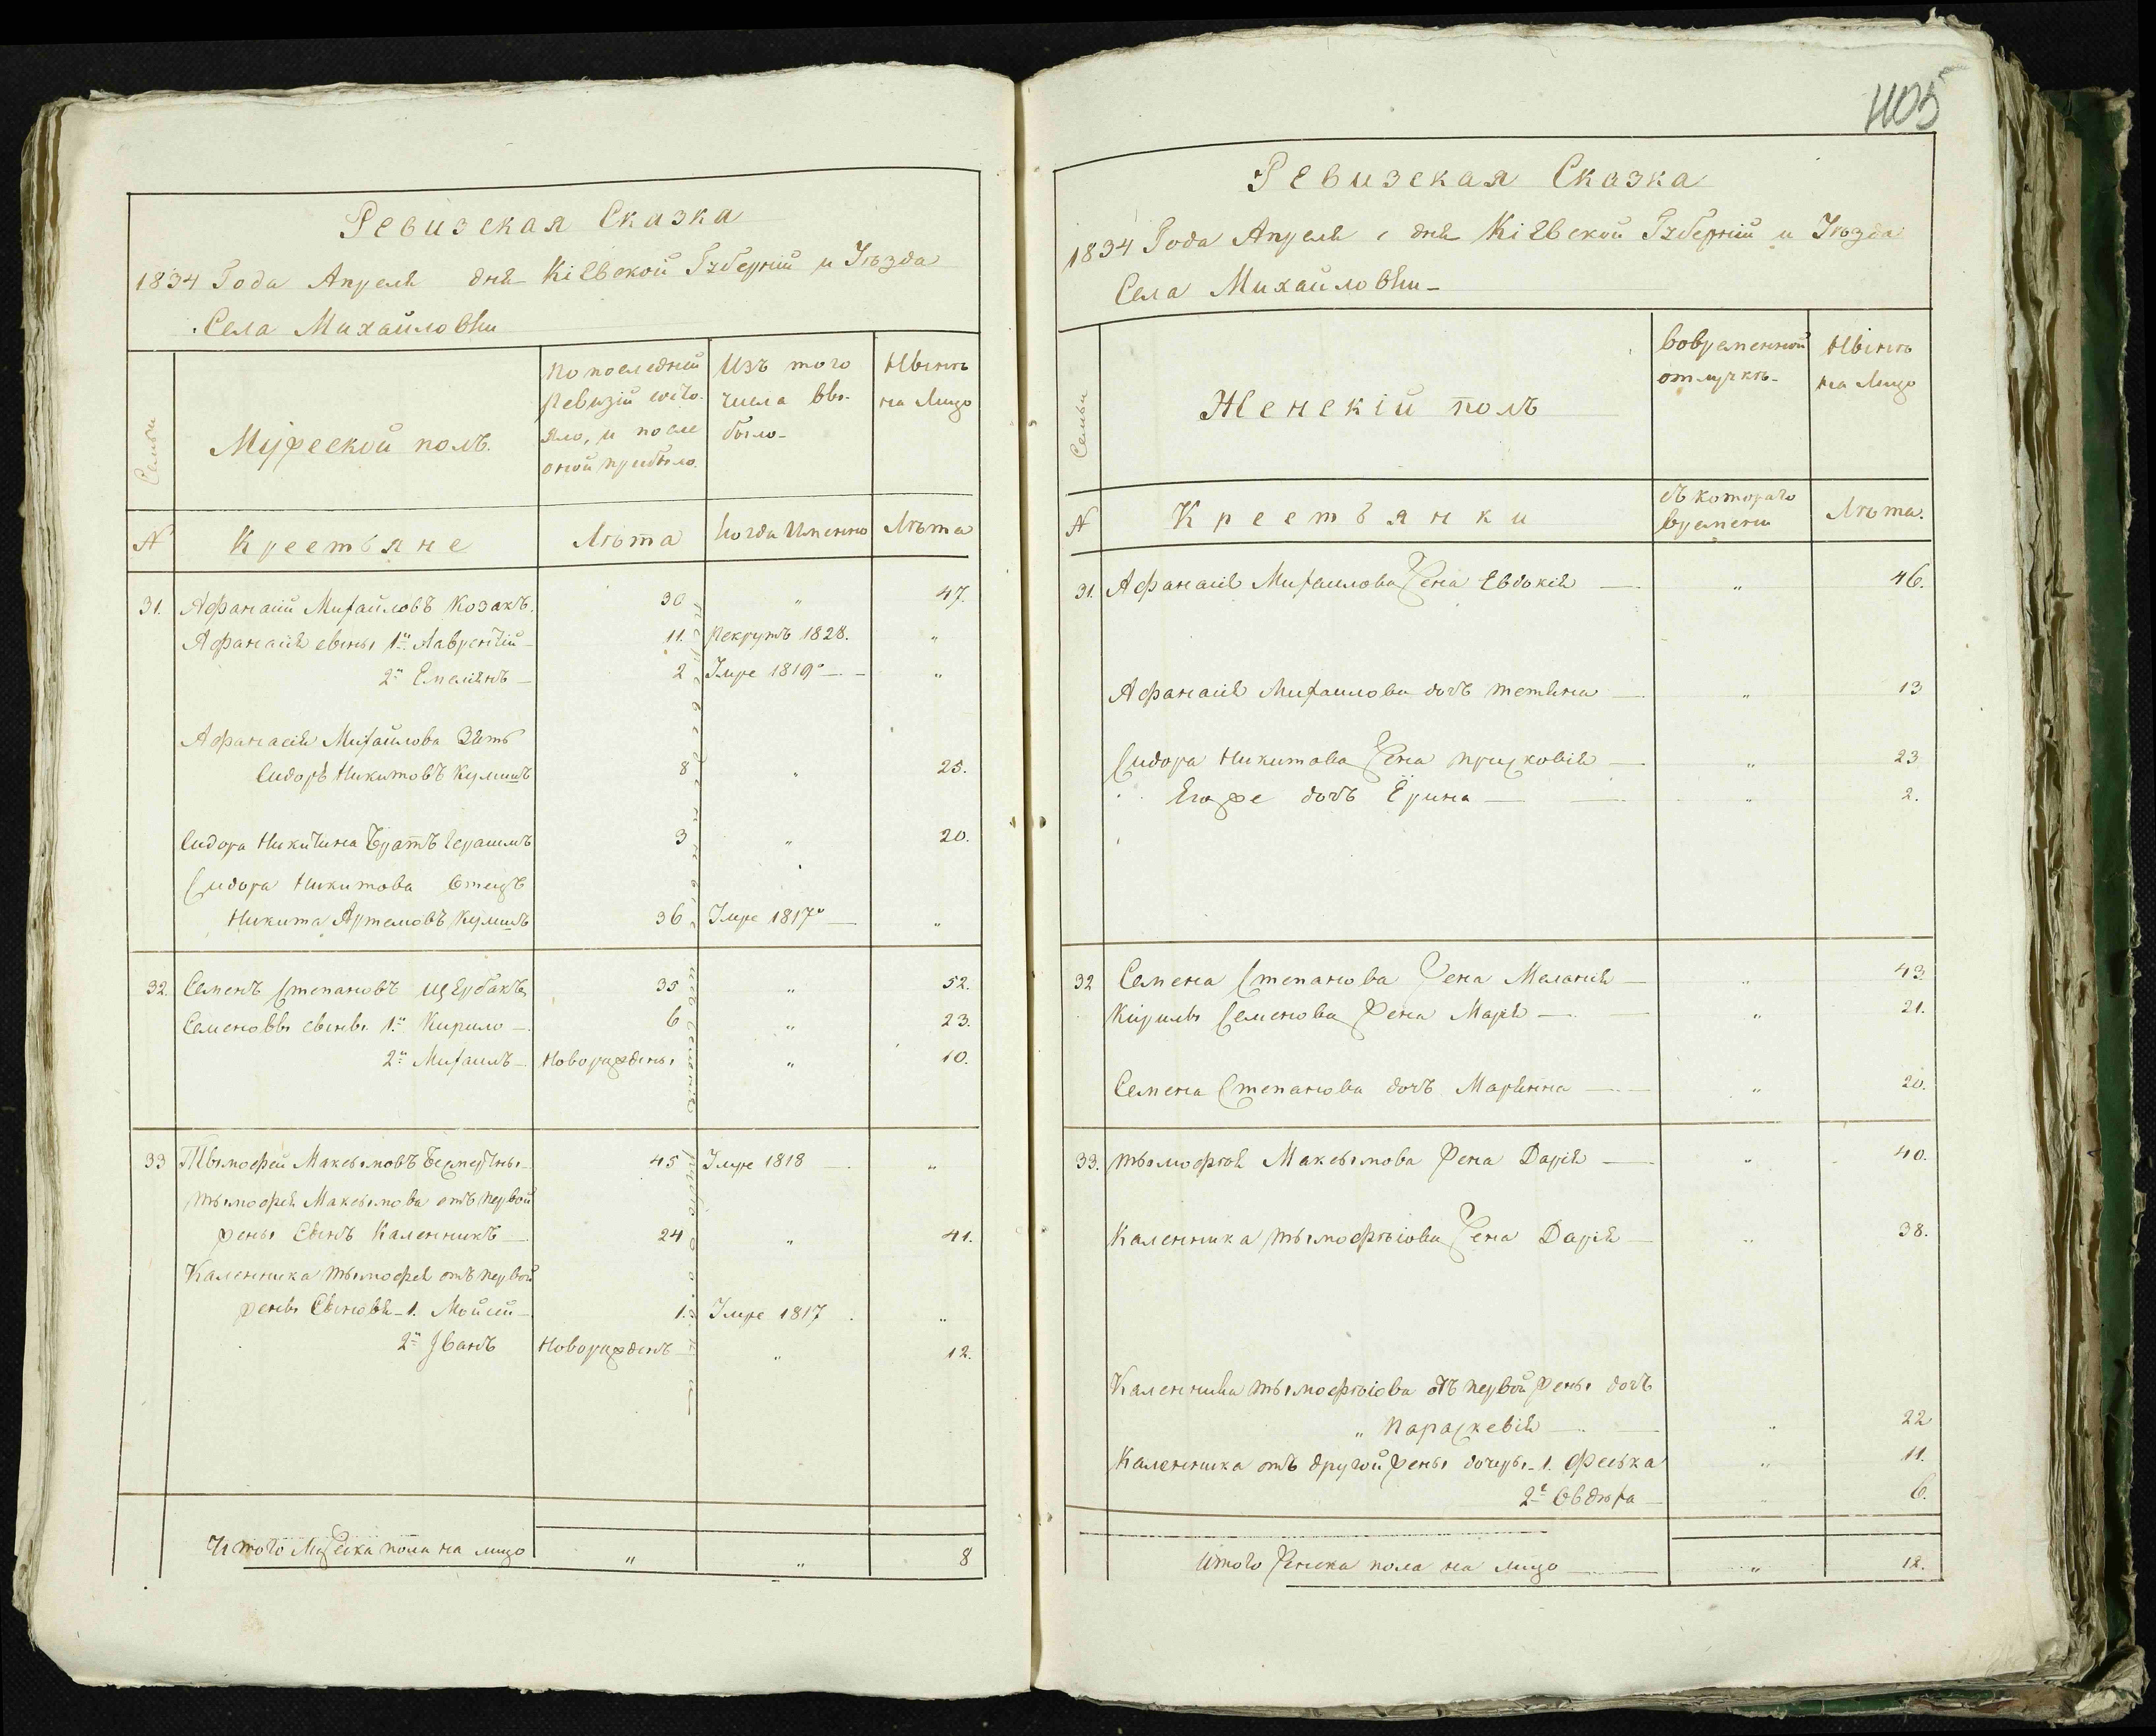 Ревизская Сказка
1834 Года Апреля дня Кіевской Губерніи и Уѣзда
Села Михайловки
Семьи
Мужеской полъ.
По последней ревизіи состояло, и после оной прибыло.
Изъ того числа выбыло
Нынѣ на Лицо
№
Крестьяне
Лѣта
Когда Именно
Лѣта
31. Афанасій Михайловъ Козакъ. 30 " 47.
Афанасія сыны 1й Лаврентій 11. рекрутъ 1828. "
2й Емелянъ 2 Умре 1819о "
Афанасія Михайлова Зять
Сидоръ Никитовъ Кулишъ 8 " 25.
Сидора Никитина братъ Герасимъ 3 " 20.
Сидора Никитова Отецъ
Никита Артемовъ Кулишъ 36 Умре 1817о "
32. Семенъ Степановъ Щербакъ 35 " 52.
Семеновы сыны 1й Кирило 6 " 23.
2й Михаилъ Новорожденъ " 10.
33 Тымофей Максымовъ 45 Умре 1818 "
Тымофея Максымова отъ первой
жены Сынъ Каленникъ 24 " 41.
Каленника Тымофея отъ первой
жены Сыновя 1. Мойсей 1. Умре 1817 "
2й Иванъ Новорожденъ " 12.
Итого Мужеска пола на лицо " " 8
405
Ревизская Сказка
1834 Года Апреля дня Кіевской Губерніи и Уѣзда
Села Михайловки
Семьи
Женскій полъ
Вовременной отлучкѣ
Нынѣ на Лицо
№
Крестьянки
съ котораго времени
Лѣта.
31. Афанасія Михаилова Жена Евдокія " 46.
Афанасія Михаилова дочь Тетяна " 13
Сидора Никитова Жена Присковія " 23
Егоже дочь Ерина " 2.
32 Семена Степанова Жена Меланія " 43
Кирилы Семенова Жена Марія " 21.
Семена Степанова дочь Марянна " 20.
33. Тымофѣя Максымова Жена Дарія " 40.
Каленника Тымофѣіова Жена Дарія " 38.
Каленника Тымофѣіова отъ первой Жены дочь
" Параскевія " 22
Каленника отъ другой Жены дочеры 1. Феська " 11.
2я Овдюха " 6.
Итого Женска пола на лицо " 12.